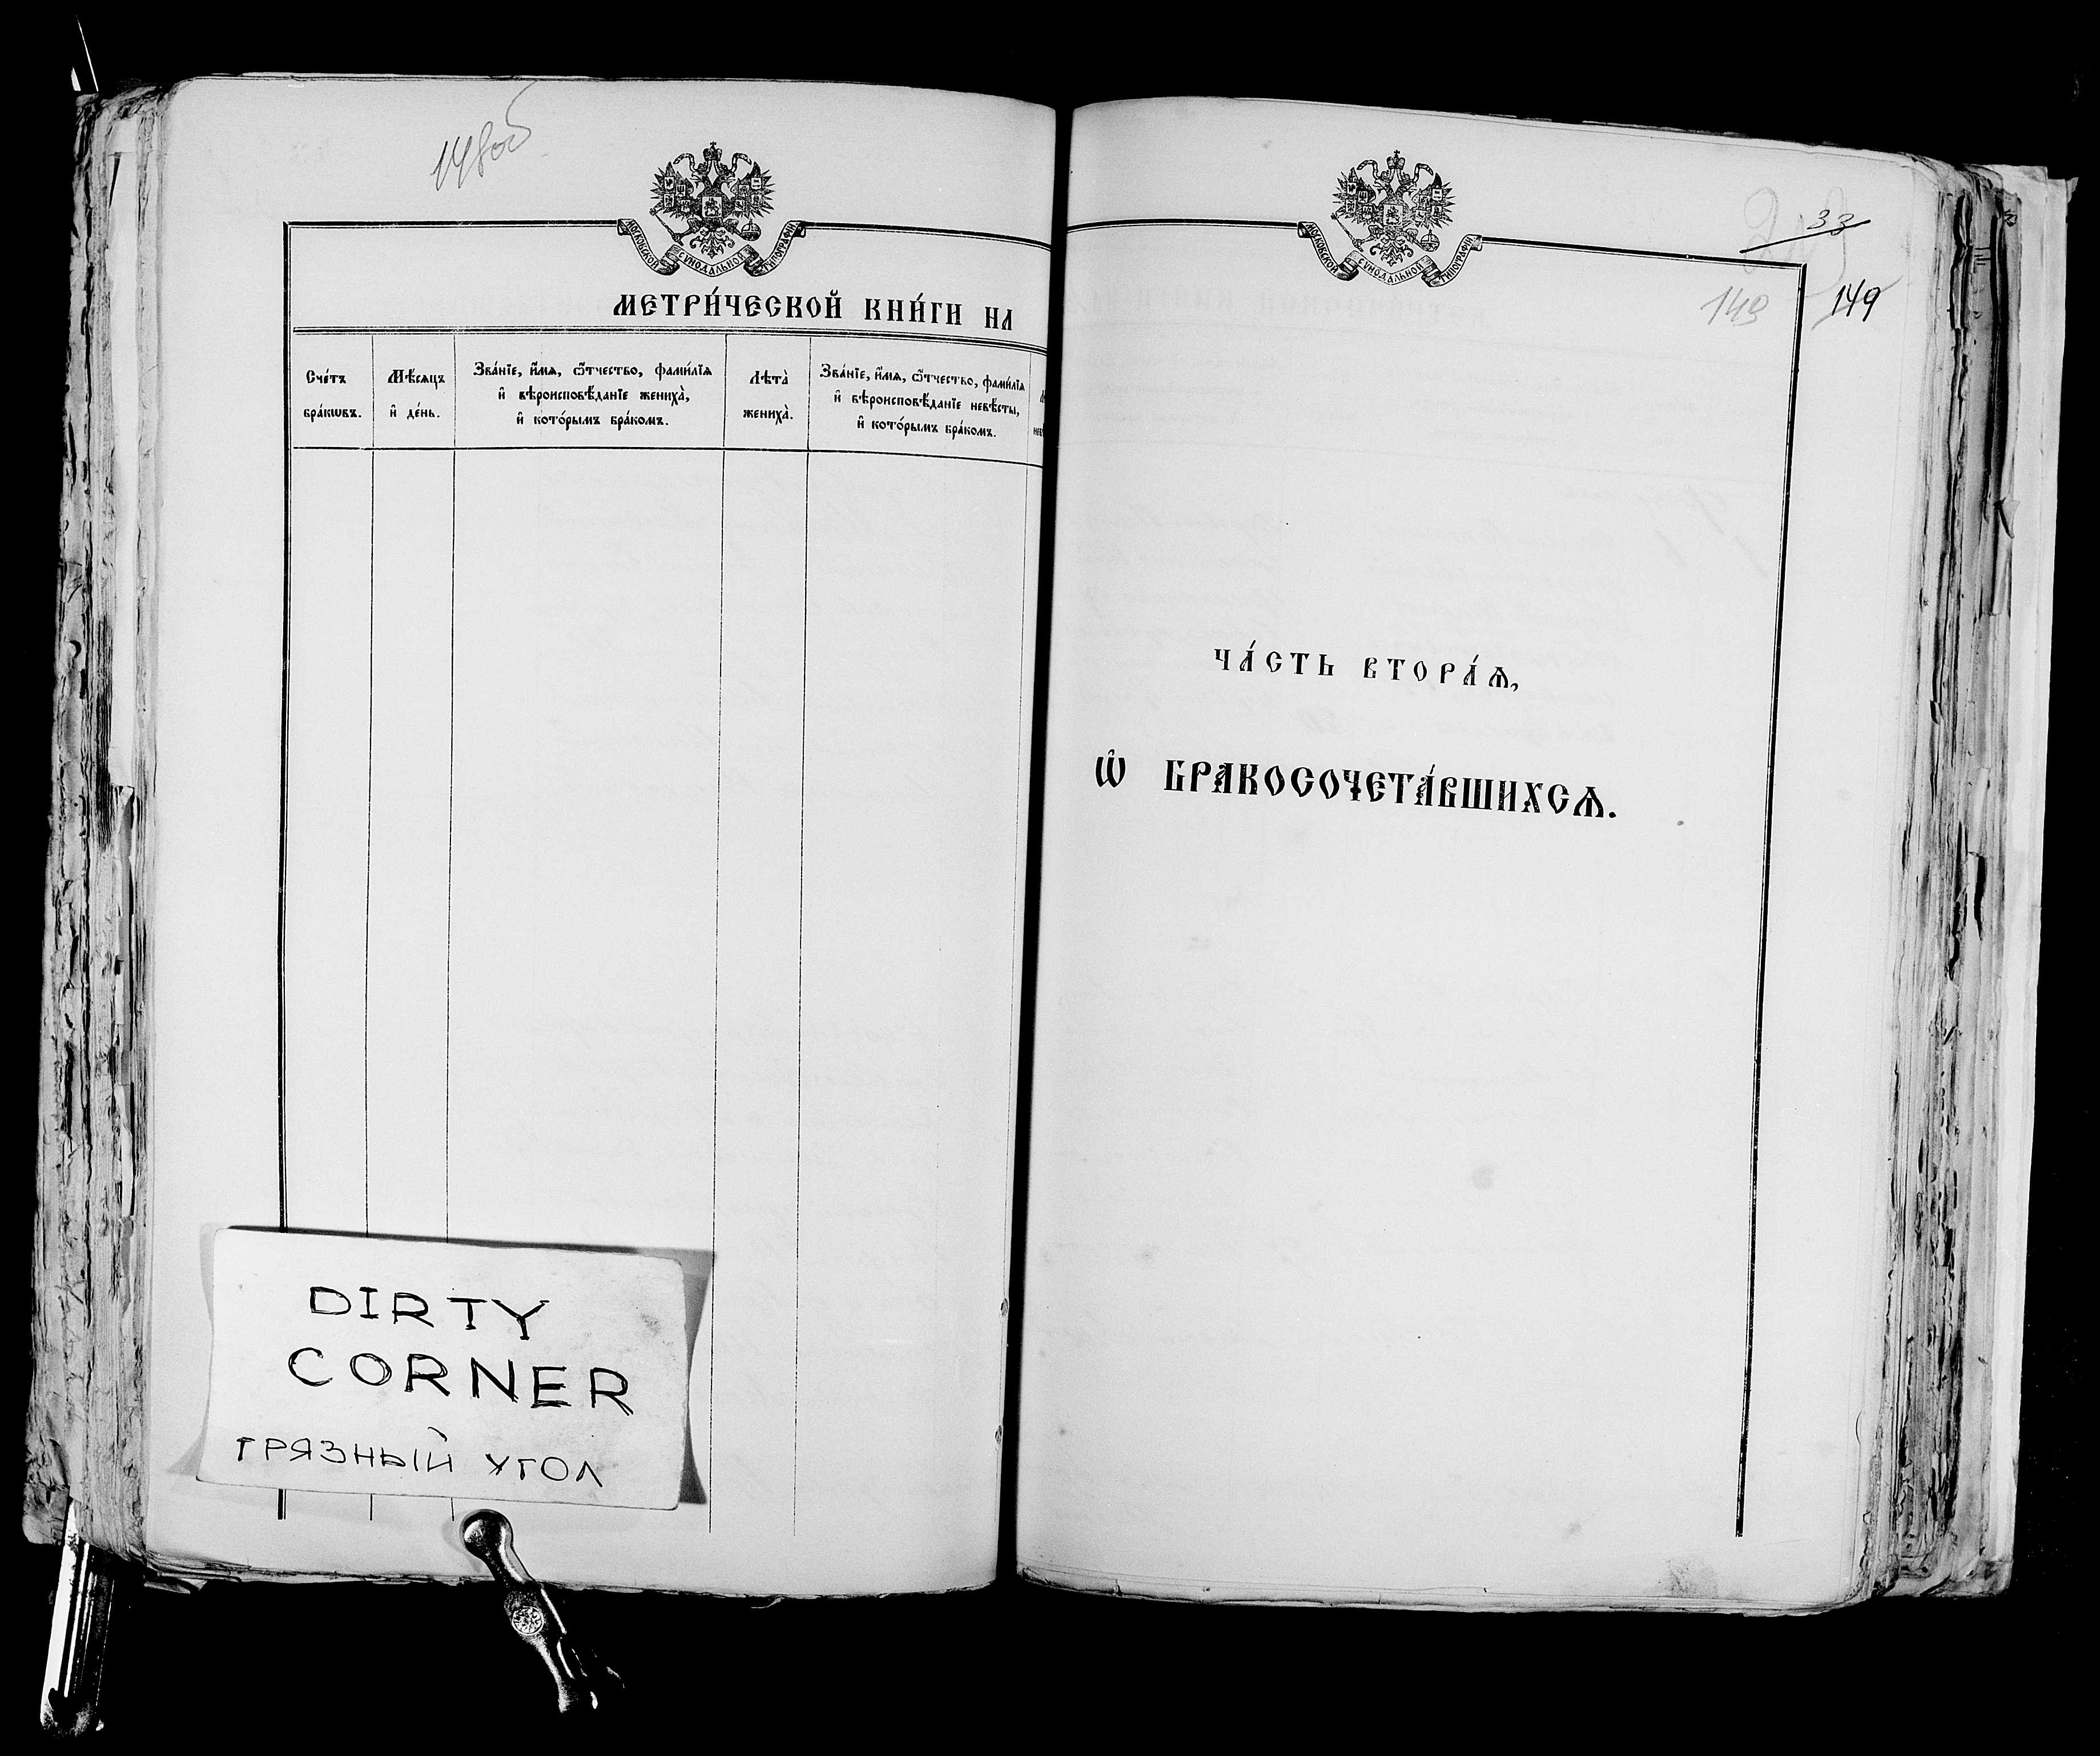 148об
МОСКОВСКОЙ СУНОДАЛЬНОЙ ТИПОГРАФІИ
МЕТРИ́ЧЕСКОЙ КНИ́ГИ НА
Сче́тъ бра́кѡвъ.
Мѣ́сяцъ и҆ де́нь.
Зва́нїе, и҆́мя, ѻ҆́тчество, фами́лїя
и҆ вѣроисповѣ́данїе жениха̀,
и҆ кото́рымъ бра́комъ.
Лѣта̀ жениха̀.
Зва́нїе, и҆́мя, ѻ҆́тчество, фами́лїя
и҆ вѣроисповѣ́данїе невѣ́сты,
и҆ кото́рымъ бра́комъ.
DIRTY
CORNER
ГРЯЗНЫЙ УГОЛ
МОСКОВСКОЙ СУНОДАЛЬНОЙ ТИПОГРАФІИ
33
149 149
ЧА́СТЬ ВТОРА́Ѧ,
Ѽ БРАКОСОЧЕТА́ВШИХСѦ.